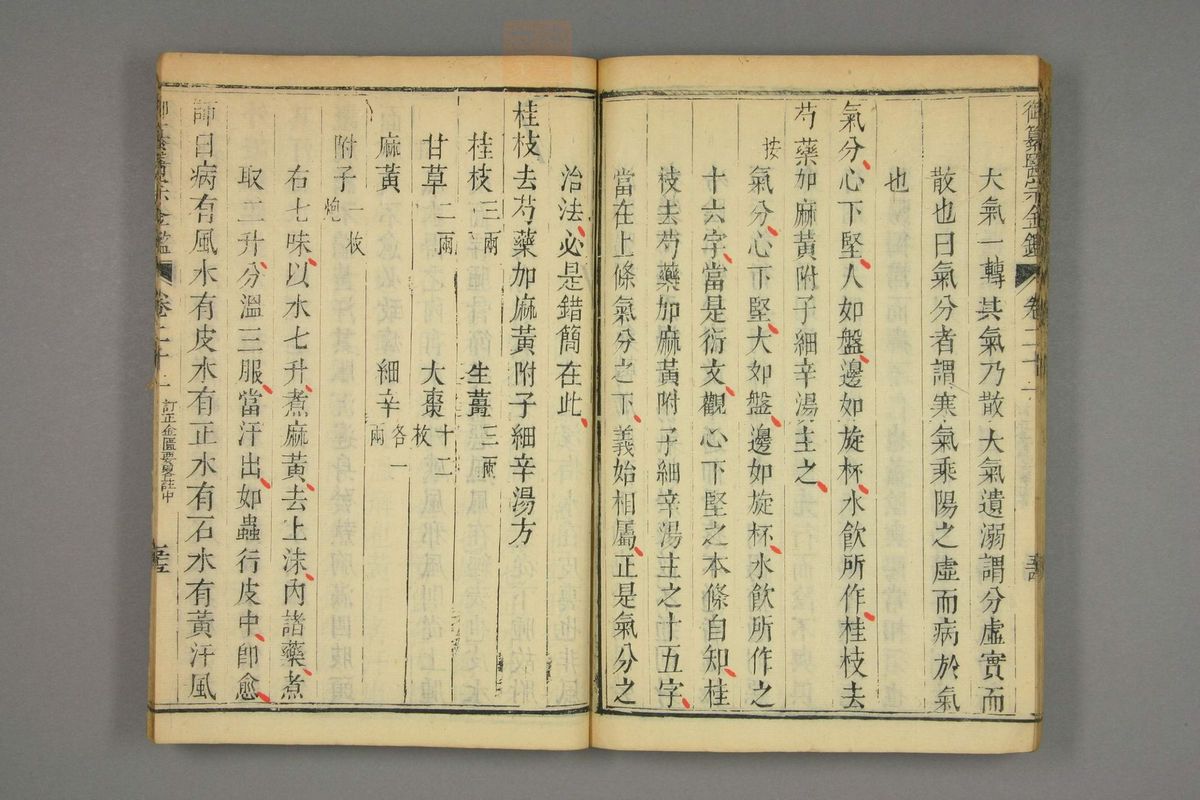 御纂醫宗金鑑 卷二十一
大氣一轉其氣乃散大氣遺溺謂分虛實而
散也曰氣分者謂寒氣乘陽之虛而病於氣
也
氣分心下堅人如盤邊如旋杯水飲所作桂枝去
芍藥加麻黃附子細辛湯主之
按
氣分心下堅大如盤邊如旋杯水飲所作之
十六字當是衍文觀心下堅之本條自知桂
枝去芍藥加麻黃附子細辛湯主之十五字
當在上條氣分之下義始相屬正是氣分之
治法必是錯簡在此
桂枝去芍藥加麻黃附子細辛湯方
桂枝三兩 生薑三兩
甘草二兩 大棗十二枚
麻黃 細辛各二兩
附子炮 枚
右七味以水七升煮麻黃去上沫內諸藥煮
取二升分溫三服當汗出如蟲行皮中即愈
師曰病有風水有皮水有正水有石水有黃汗風
卷二十一 訂正金匱要畧註中